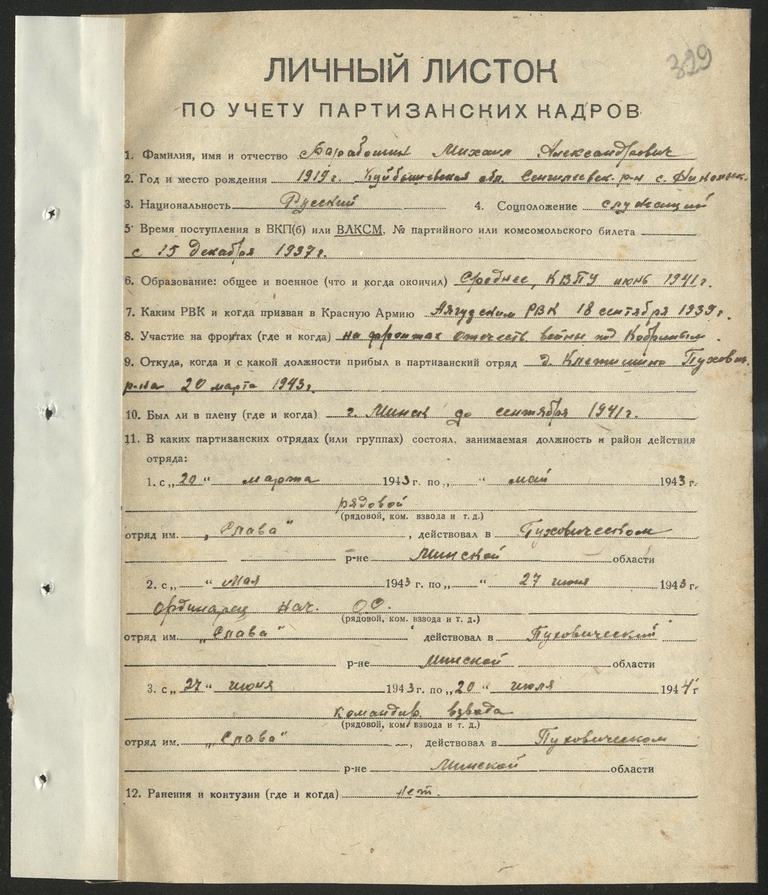 329
ЛИЧНЫЙ ЛИСТОК
ПО УЧЕТУ ПАРТИЗАНСКИХ КАДРОВ
1. Фамилия, имя и отчество Михаил Александрович
2. Год и место рождения 1919 г. Куйбышевская обл. р-н с.
3. Национальность Русский 4. Соцположение служащий
5. Время поступления в ВКП(б) или ВЛКСМ, № партийного или комсомольского билета
с 15 декабря 1937 г.
6. Образование: общее и военное (что и когда окончил) Среднее, КВПУ июнь 1941 г.
7. Каким РВК и когда призван в Красную Армию Аягузским РВК 18 сентября 1939 г.
8. Участие на фронтах (где и когда) на фронтах отечеств войны под
9. Откуда, когда и с какой должности прибыл в партизанский отряд д. Пухович.
р-на 20 марта 1943 г.
10. Был ли в плену (где и когда) г. Минск до сентября 1941 г.
11. В каких партизанских отрядах (или группах) состоял, занимаемая должность и район действия
отряда:
1. с „20“ марта 1943 г. по „ “ май 1943 г.
рядовой
(рядовой, ком. взвода и т. д.)
отряд им. „Слава“, действовал в Пуховическом
р-не Минской области
2. с „ “ Мая 1943 г. по „ “ 27 июня 1943 г.
Ординарец Нач. О.О.
(рядовой, ком. взвода и т. д.)
отряд им. „Слава“ действовал в Пуховический
р-не Минской области
3. с „27“ июня 1943 г. по „20“ июля 1944 г
командир взвода
(рядовой, ком. взвода и т. д.)
отряд им. „Слава“, действовал в Пуховическом
р-не Минской области
12. Ранения и контузии (где и когда) нет.